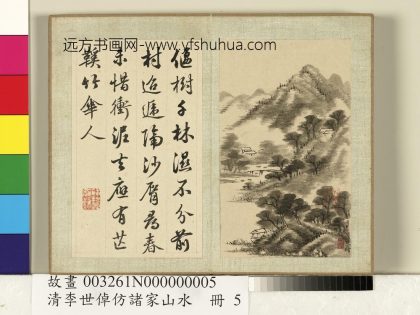 远方书画网-www.yfshuhua.com
樹千林濕不分前
村迢遞隔沙脣尋春
未惜衝泥去應有芒
鞵竹傘人
故畫 003261N000000005
清李世倬仿諸家山水 冊 5